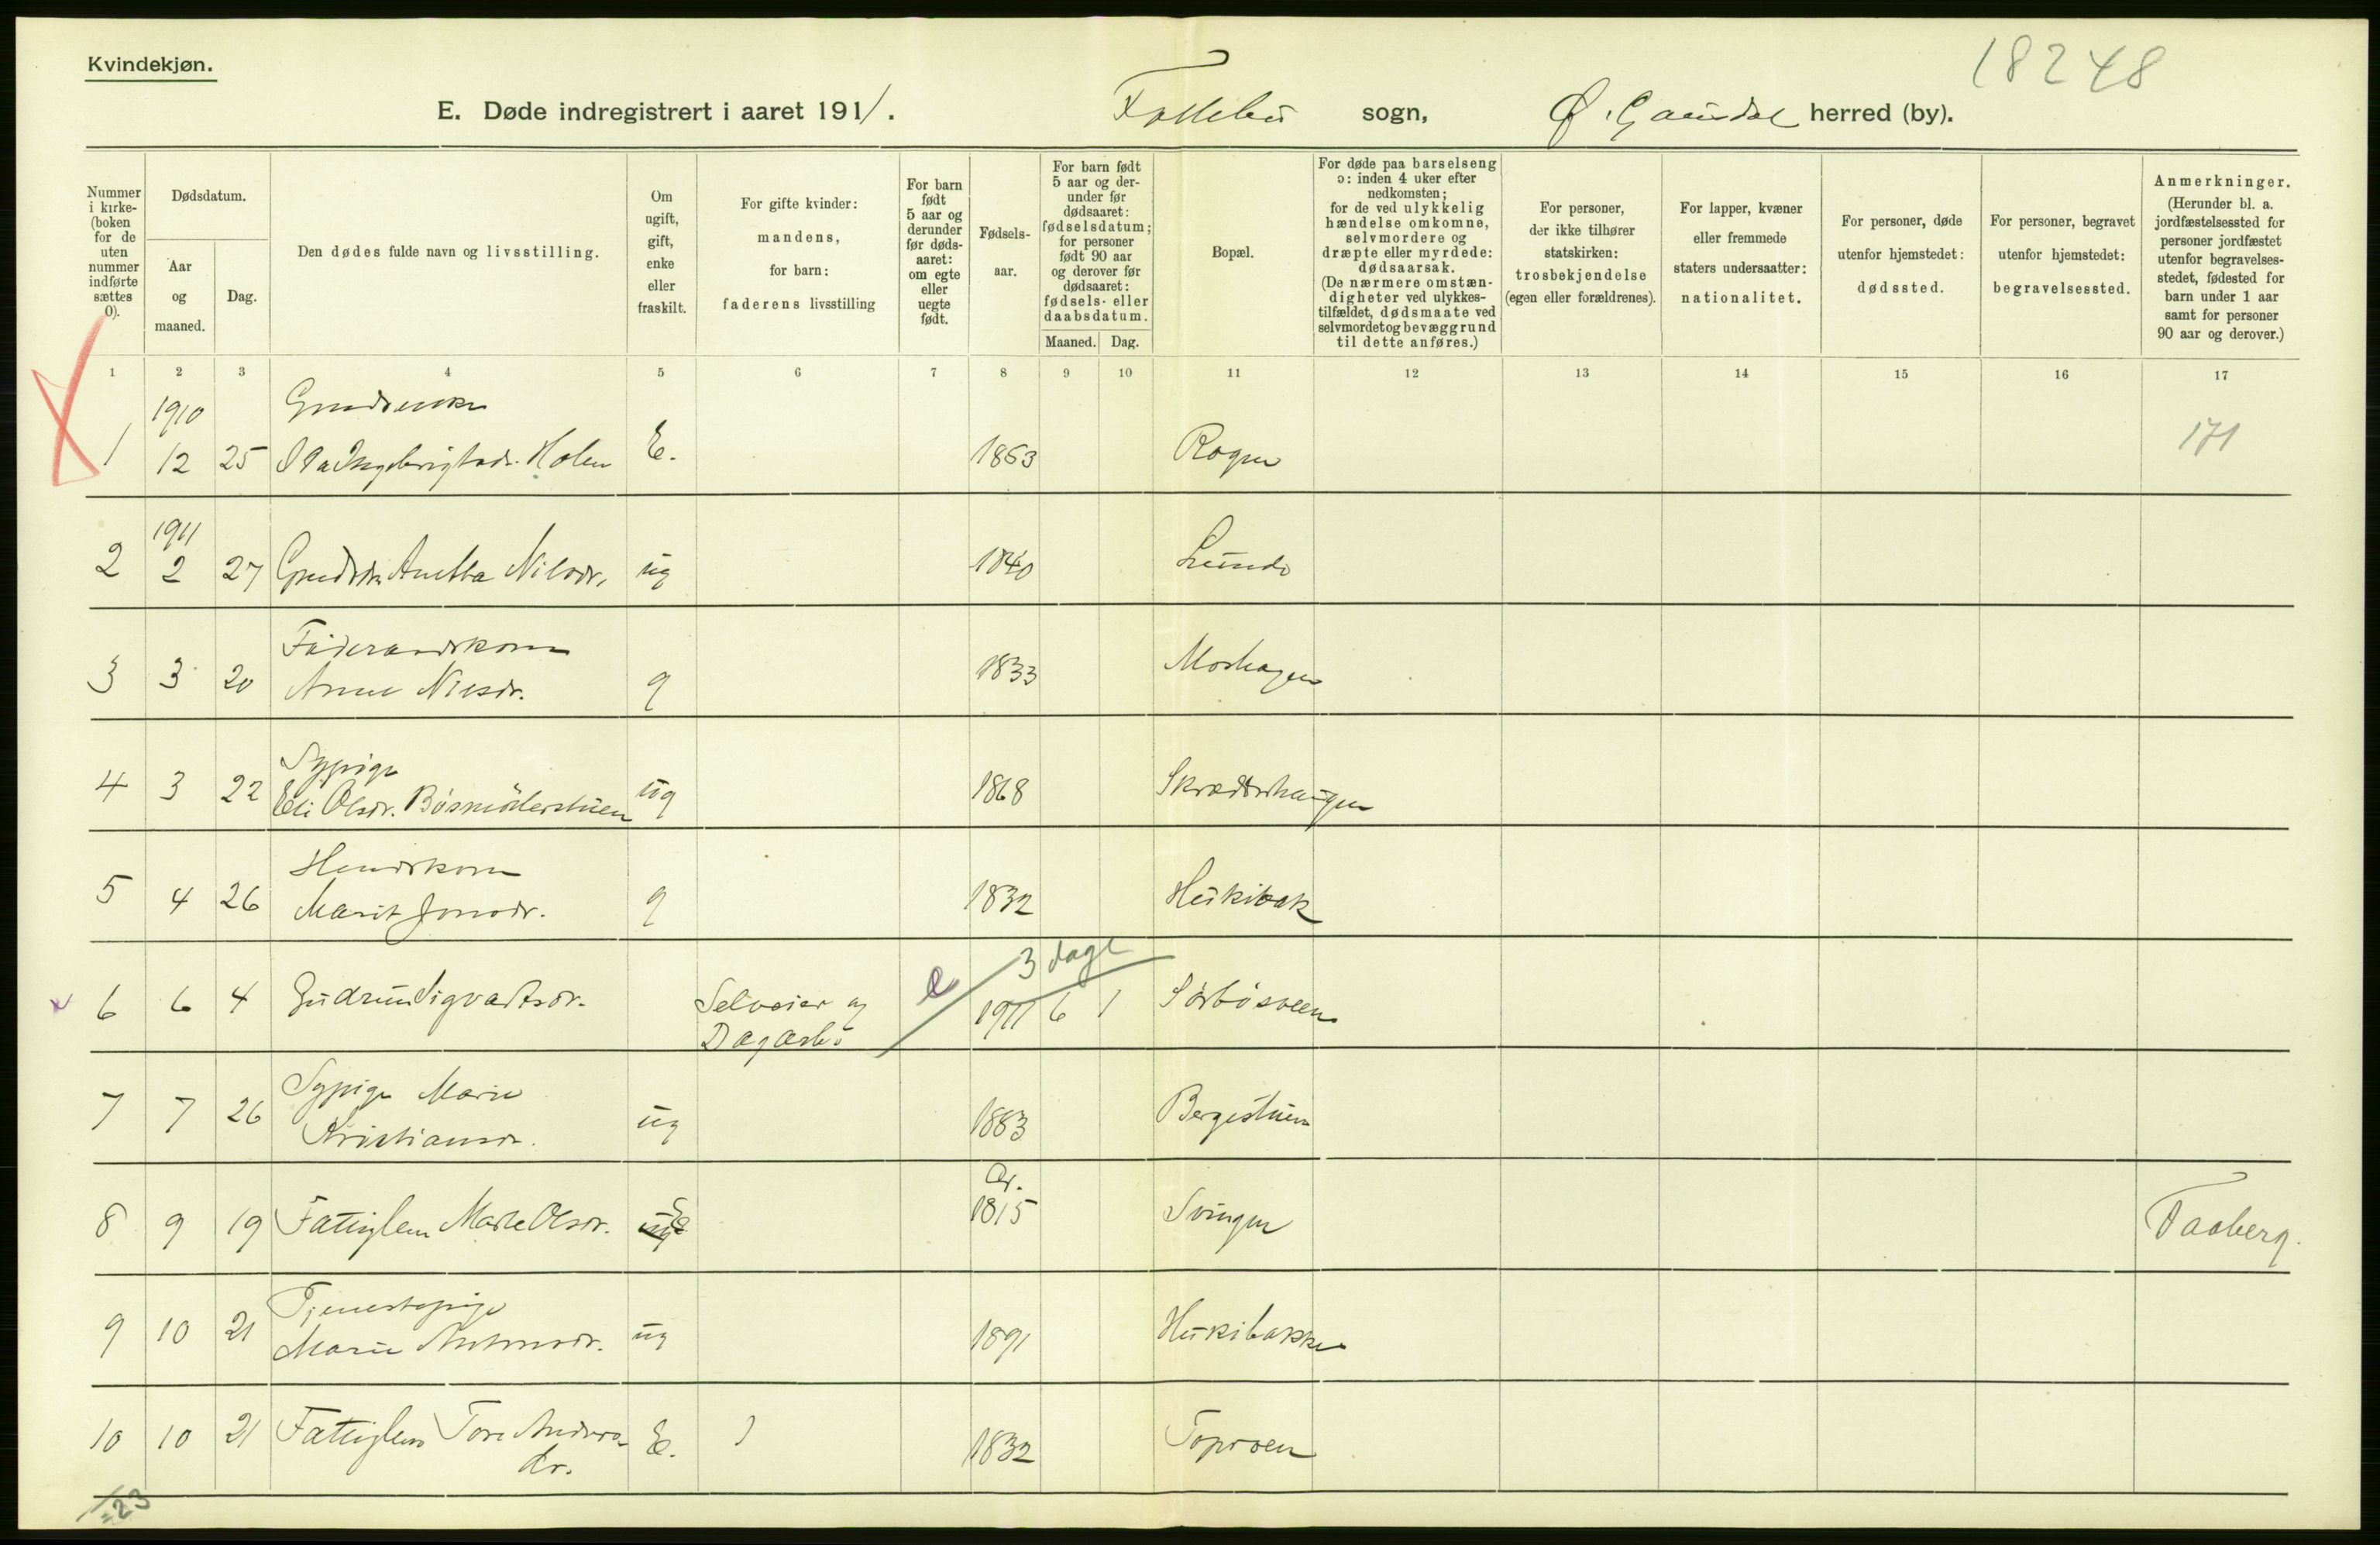 Kvindekjøn.
18248
E. Døde indregistrert i aaret 1911.
Follebu sogn, Ø. Gausdal herred (by).
Nummer i kirke-(boken for de uten nummer indførte sættes 0).
Dødsdatum.
Aar og maaned.
Dag.
Den dødes fulde navn og livsstilling.
Om ugift, gift, enke eller fraskilt.
For gifte kvinder: mandens, for barn: faderens livsstilling
For barn født 5 aar og derunder før døds-aaret: om egte eller uegte født.
Fødsels-aar.
For barn født 5 aar og der-under før dødsaaret: fødselsdatum; for personer født 90 aar og derover før dødsaaret: fødsels- eller daabsdatum.
Maaned. Dag.
Bopæl.
For døde paa barselseng ɔ: inden 4 uker efter nedkomsten; for de ved ulykkelig hændelse omkomne, selvmordere og dræpte eller myrdede: dødsaarsak. (De nærmere omstæn-digheter ved ulykkes-tilfældet, dødsmaate ved selvmordet og bevæggrund til dette anføres.)
For personer, der ikke tilhører statskirken: trosbekjendelse (egen eller forældrenes).
For lapper, kvæner eller fremmede staters undersaatter: nationalitet.
For personer, døde utenfor hjemstedet: dødssted.
For personer, begravet utenfor hjemstedet: begravelsessted.
Anmerkninger. (Herunder bl. a. jordfæstelsessted for personer jordfæstet utenfor begravelses-stedet, fødested for barn under 1 aar samt for personer 90 aar og derover.)
1 2 3 4 5 6 7 8 9 10 11 12 13 14 15 16 17
1910
1 12 25 Ingebrigtsdr. Holen E. 1863 Rogne 171
1911
2 2 27 Anetta Nilsdr. ug 1840 Lunde
Føderaadskone
3 3 20 Anne Nilsdr. g 1833 Moshagen
Sypige
4 3 22 Eli Olsdr. Bøsmøllerstuen ug 1868 Skrædderhaugen
5 4 26 Marit Jonsdr. g 1832 Hukibak
3 dage
6 6 4 Gudrun Sigvartsdr. Selveier og e 1911 6 1 Sørbøsveen
Dagarb.
Sypige Marie
7 7 26 Kristiansdr. ug 1883 Bergestuen
Ca.
8 9 19 Fattiglem Marte Olsdr. E 1815 Svingen Faaberg.
Tjenestepige
9 10 21 Marie Antonsdr. ug 1891 Hukibakken
10 10 21 Fattiglem Tore Anders- E. 1832 Toproen
dr.
=23